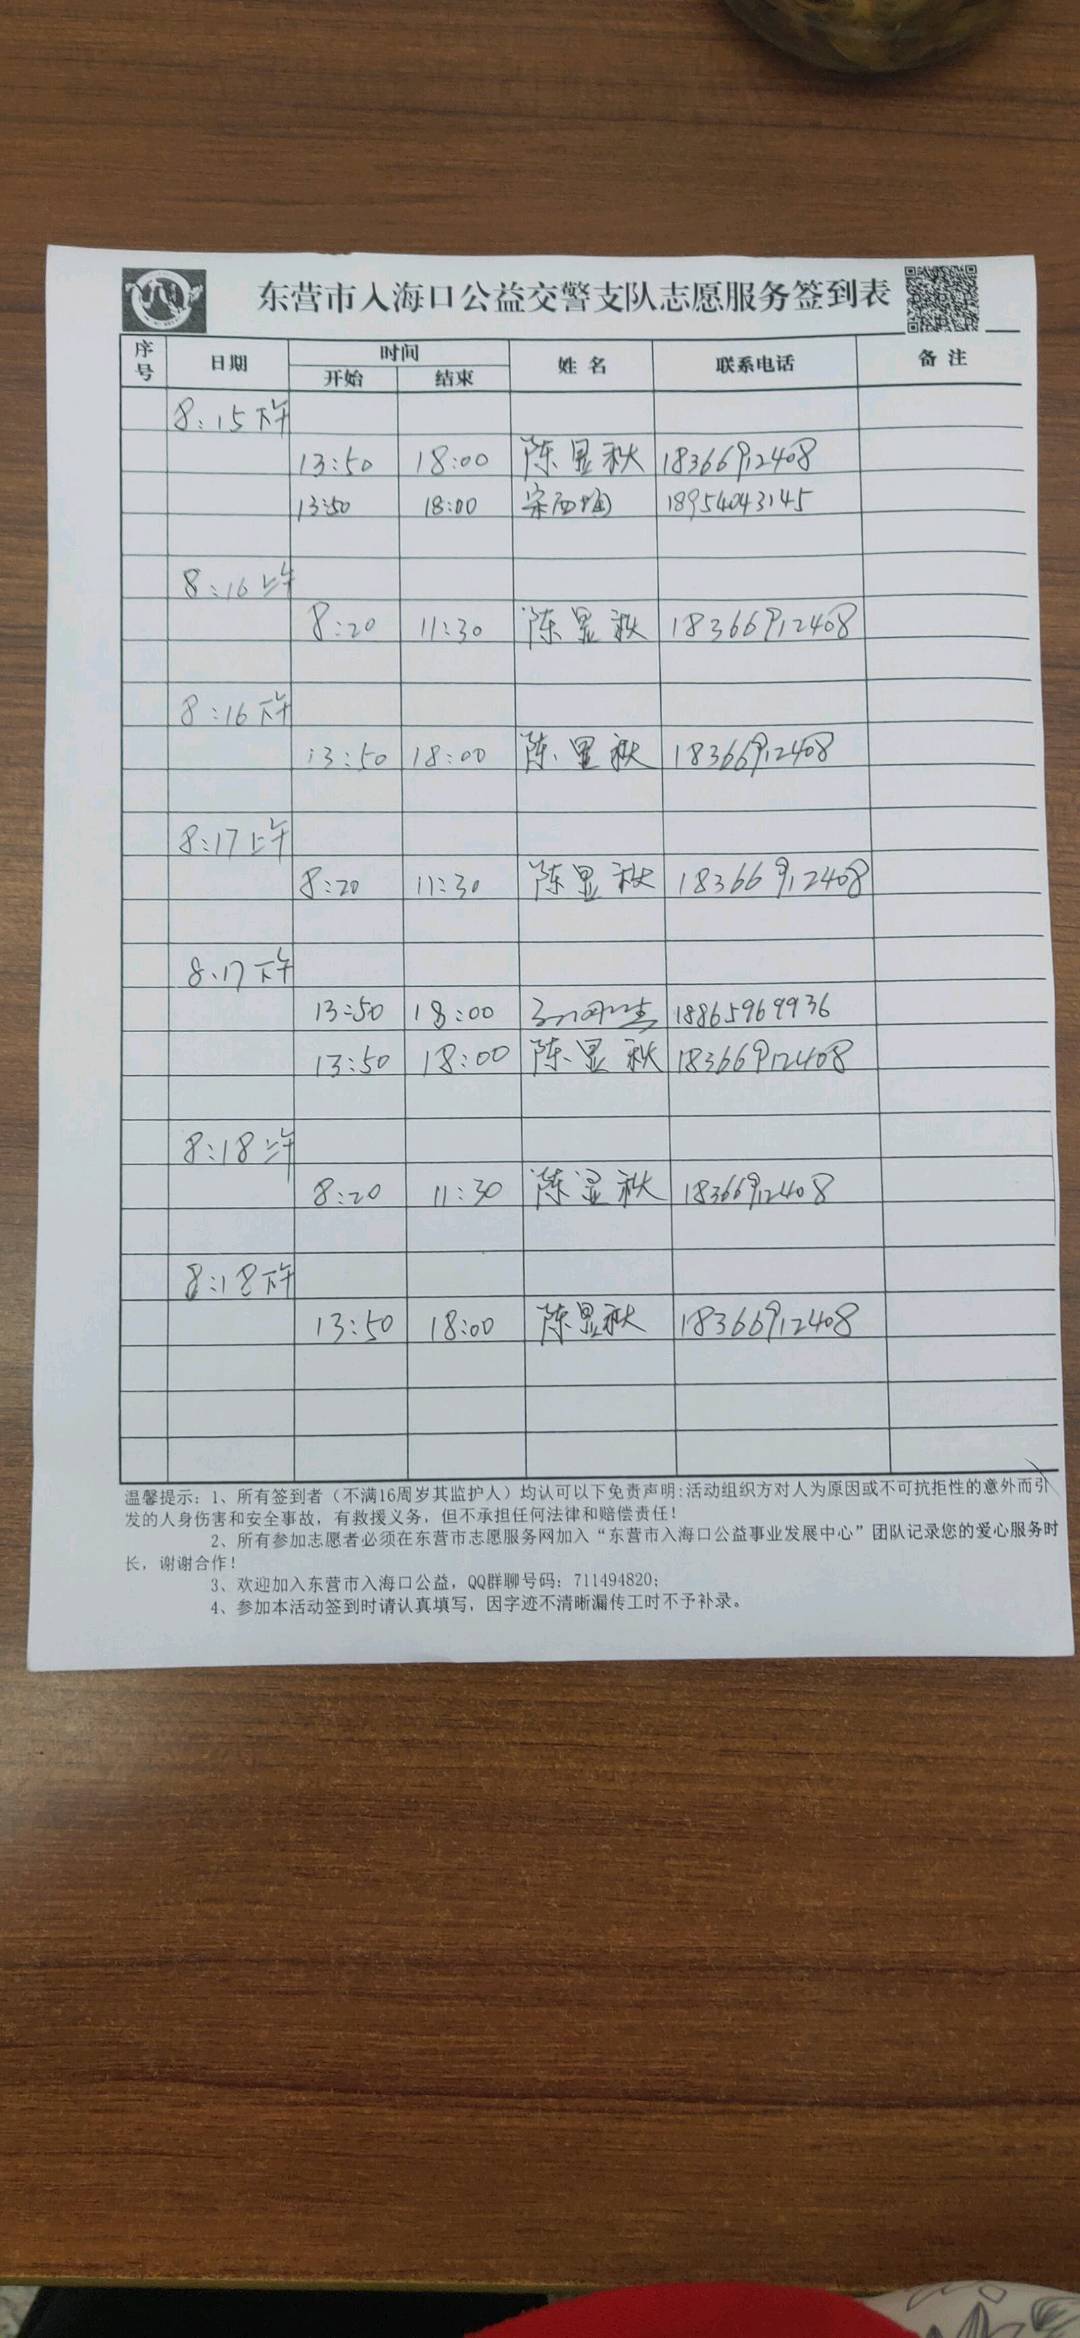 东营市入海口公益交警支队志愿服务签到表
序号 日期 时间 姓名 联系电话 备注
开始 结束
8:15下午
13:50 18:00 陈显秋 18366912408
13:50 18:00 18954043145
8:16上午
8:20 11:30 陈显秋 18366912408
8:16下午
13:50 18:00 陈显秋 18366912408
8:17上午
8:20 11:30 陈显秋 18366912408
8.17下午
13:50 18:00 18865969936
13:50 18:00 陈显秋 18366912408
8:18上午
8:20 11:30 陈显秋 18366912408
8:18下午
13:50 18:00 陈显秋 18366912408
温馨提示：1、所有签到者（不满16周岁其监护人）均认可以下免责声明:活动组织方对人为原因或不可抗拒性的意外而引
发的人身伤害和安全事故，有救援义务，但不承担任何法律和赔偿责任！
2、所有参加志愿者必须在东营市志愿服务网加入“东营市入海口公益事业发展中心”团队记录您的爱心服务时
长，谢谢合作！
3、欢迎加入东营市入海口公益，QQ群聊号码：711494820；
4、参加本活动签到时请认真填写，因字迹不清晰漏传工时不予补录。